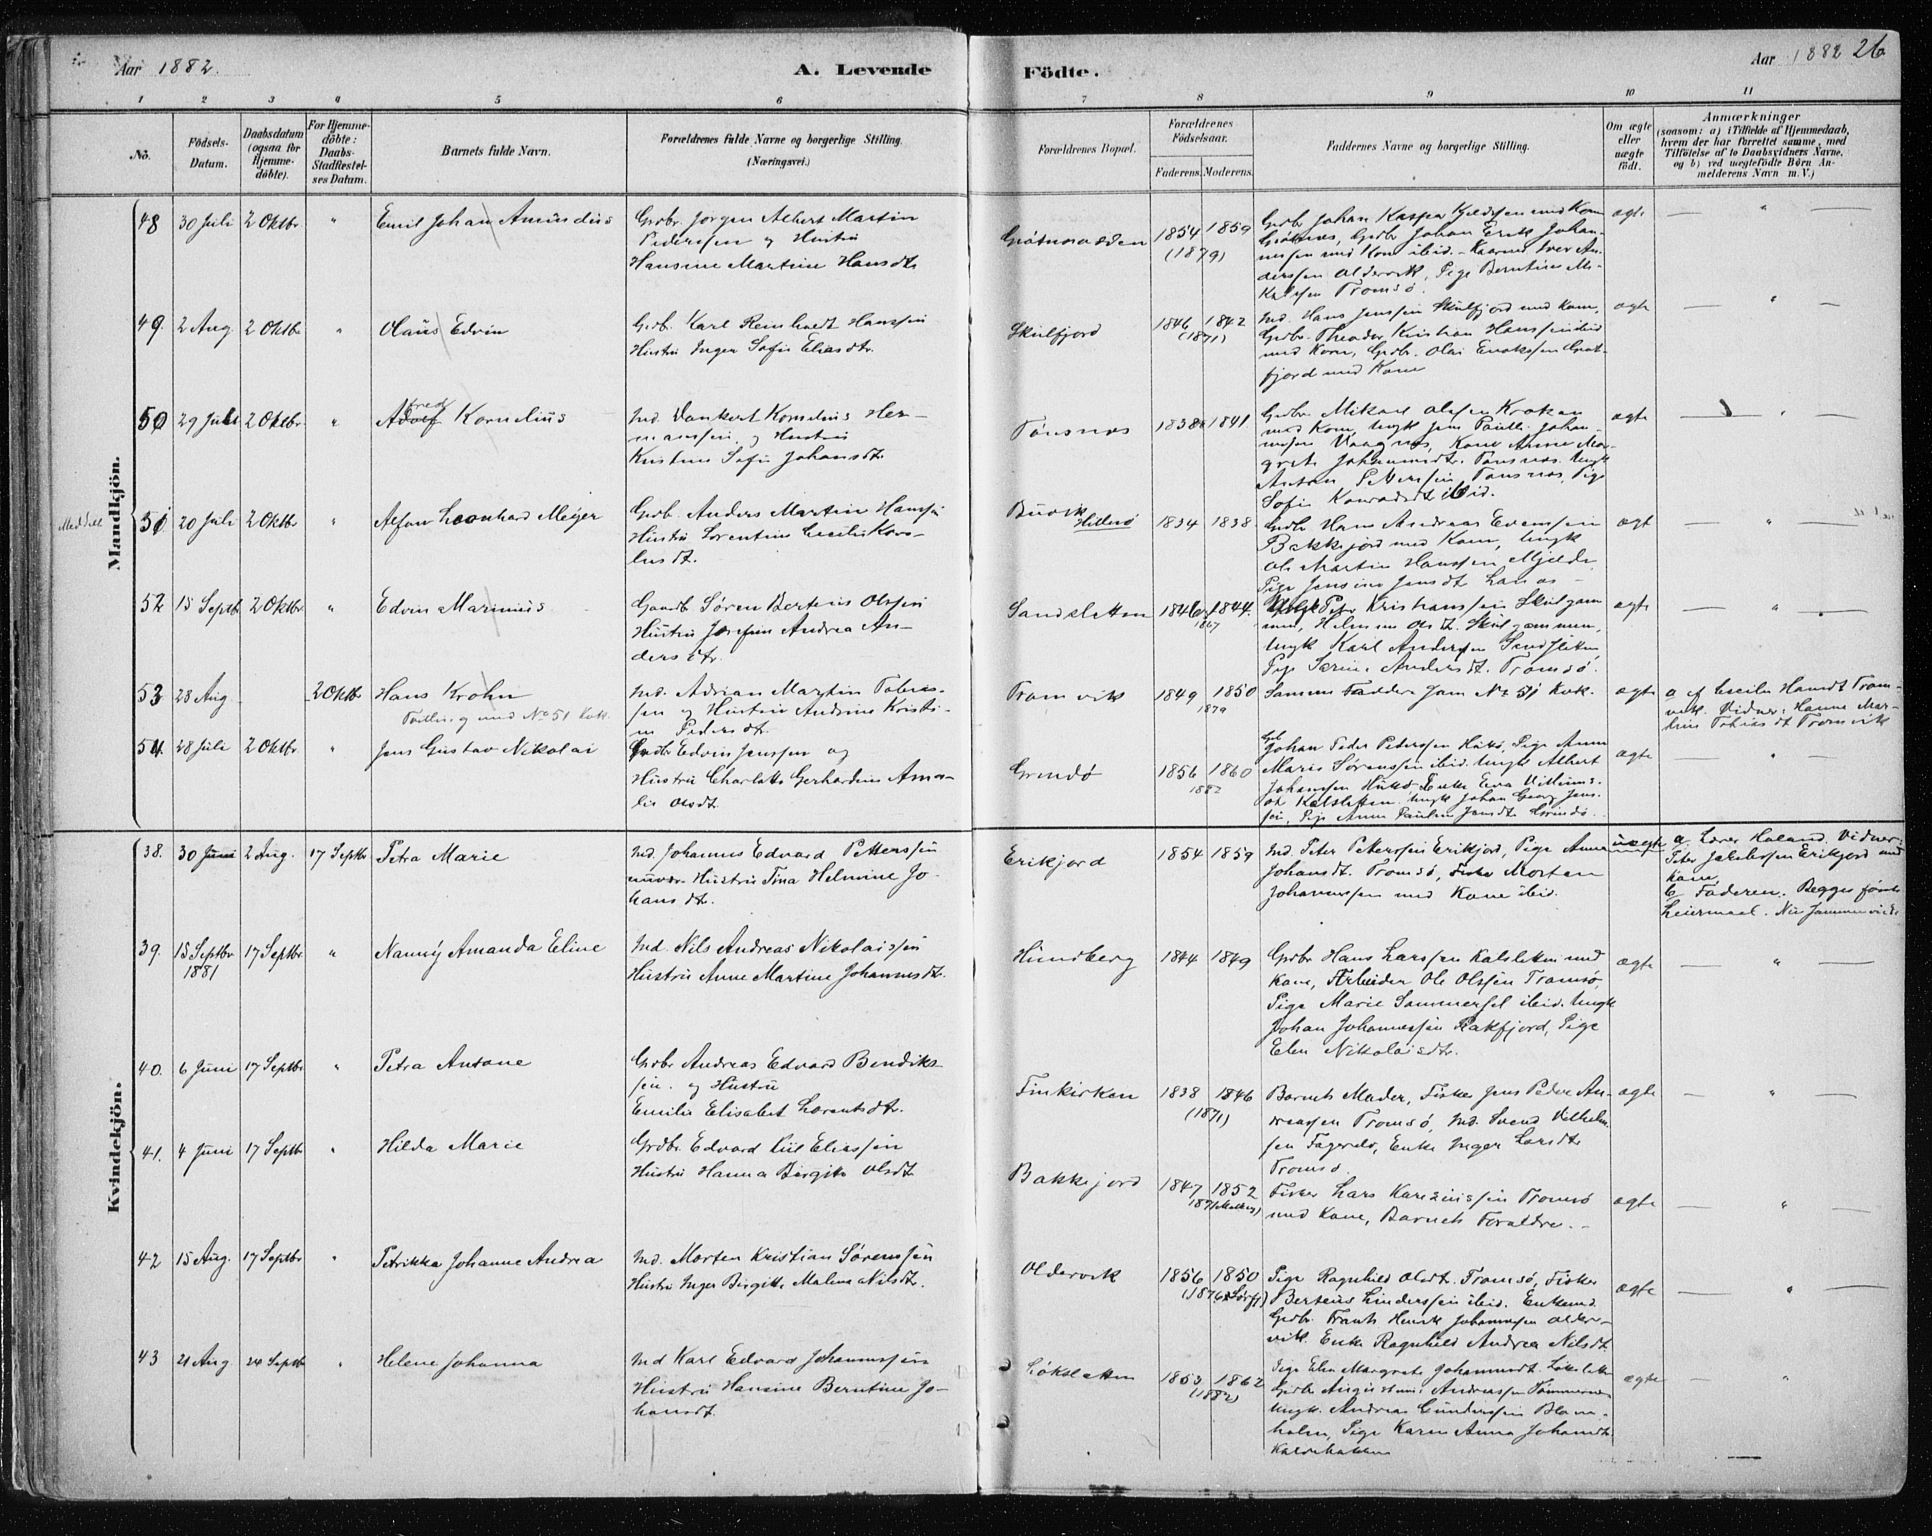 Aar 1882.
A. Levende
Födte.
Aar 1882 26
1 2 3 4 5 6 7 8 9 10 11
No.
Födsels-
Datum.
Daabsdatum
(ogsaa for
Hjemme-
döbte).
For Hjemme-
döbte:
Daabs-
Stadfæstel-
ses Datum.
Barnets fulde Navn.
Forældrenes fulde Navne og borgerlige Stilling.
(Næringsvei.)
Forældrenes Bopæl.
Forældrenes
Födselsaar.
Faderens. Moderens.
Faddernes Navne og borgerlige Stilling.
Om ægte
eller
uægte
födt.
Anmærkninger
(saasom: a) i Tilfælde af Hjemmedaab,
hvem der har forrettet samme, med
Tilföielse af to Daabsvidners Navne,
og b) ved uægtefödte Börn An-
melderens Navn m. V.)
Mandkjön.
48 30 Juli 2 Oktbr " Emil Johan Amundus
Grdbr. Jørgen Albert Martin
Pederssen og Hustru
Hansine Martine Hansdtr
1854 1859
(1879)
Grdbr Johan Kaspar Kjeldsen med Kone
Grdbr Johan Erik Johan-
nessen med Kone ibid.
derssen Oldervik, Pige Berntine Mi-
Tromsø.
ægte — " —
49. 2 Aug. 2 Oktbr " Olaus Edvin
Grdb. Karl Reinhardt Hanssen
Hustru Inger Sofie Eliasdtr.
Skulfjord
1846 1842
(1871)
Ind. Hans Jenssen Skulfjord med Kone,
Grdbr. Theodor Kristian Hanssen ibid
med Kone, Grdbr. Olai Enokssen Grøt-
fjord med Kone
ægte — " —
50 29 Juli 2 Oktbr " Adolf fred Kornelius
Ind. Dankert Kornelius Her-
manssen og Hustru
Kristine Sofie Johansdtr.
Tønsnæs
1838 1841
Grdbr. Mikael Olsen Kroken
med Kone, Ungk Jens Johan-
nesen Vaagnæs, Kone Anna Mar-
grete Tønsnæs. Ungk
Anton Petterssen Tønsnæs, Pige
Sofie Konradsdt ibid.
ægte — " —
Meddelt
51 20 Juli 2 Oktbr " Alfon Leonhard Meyer
Grdb. Anders Martin Hanssen
Hustru Sørentine Cecilie Kor-
Buvik
Hillesø
1834 1838
Grdbr Hans Andreas Evenssen
Bakkejord med Kone, Ungk
Ole Martin Hanssen Mjelde
Pige Jensine Jensdt
ægt — " —
52 15 Septb 2 Oktbr " Edvin Marinius
Gaardb Søren Bertinus Olssen
Hustru Josefine Andrea An-
dersdtr.
Sandsletten
1846 1844.
1867
Ungk Peter Kristianssen Skulgam
men, Helmine Olsdt. Skulgammen,
Ungk Karl Anderssen Sandsletten
Pige Serine Andersdt. Tromsø.
ægte — " —
53 28 Aug 2 Oktbr Hans Krohn
Tvilling med No 51 Kvk.
Ind. Adrian Martin Tobias-
sen og Hustru Andrine Kristi-
ne Pedersdt.
Tromvik
1849 1850
1879
Samme Faddere som No 51 Kvk.
ægte
a af Cecilie Hansdt Trom-
vik. Vidner: Hanna Mar-
tine Tobiasdt Tromvik
54. 28 Juli 2 Oktbr " Jens Gustav Nikolai
Grdbr Edvin Jenssen og
Hustru Charlotte Gerhardine Ama-
lie Olsdt.
Grindø
1856 1860
1882
Johan Peder Pederssen Pige Anna
Marie Sørenssen ibid. Ungk Albert
Johanssen Enke Eva Vilhelms-
dt Kalsletten. Ungk Johan Georg Jens-
sen, Pige Anna Pauline Jensdt Grindø.
ægte — " —
Kvindekjön.
38. 30 Juni 2 Aug. 17 Septbr Petra Marie
Ind. Johannes Edvard Petterssen
nuvær. Hustru Tina Helmine Jo-
hansdt.
Erikjord
1854 1859
Ind. Peter Petterssen Erikjord, Pige Anna
Johansdt. Tromsø, Fisker Morten
Johannessen med Kone ibid.
uægte
a Lærer Høland. Vidner:
Peter Jakobssen Erikjord med
Kone
b Faderen. Begges første
Leiermaal. Nu sammenviede
39. 15 Septbr 1881 17 Septbr " Nanny Amanda Eline
Ind. Nils Andreas Nikolaissen
Hustru Anne Martine Johannesdt.
Hundberg
1844 1849
Grdbr Hans Larssen Kalsletten med
Kone, Arbeider Ole Olssen Tromsø,
Pige Marie Sommersel ibid. Ungk
Johan Johannessen Rakfjord, Pige
Elen Nikolaisdtr.
ægte — " —
40. 6 Juni 17 Septbr " Petra Antone
Grdbr Andreas Edvard Bendiks-
sen. og Hustru
Emilie Elisabet Lorentsdtr.
Finkirken
1838 1846
(1871)
Barnets Moder, Fisker Jens Peder An-
dreassen Tromsø, Ind. Svend Vilhelm
sen Enke Inger Larsdt
Tromsø.
ægte — " —
41. 4 Juni 17 Septbr " Hilda Marie
Grdbr. Edvard Eliassen
Hustru Hanna Birgitte Olsdt
Bakkejord
1847 1852
1871
Fisker Lars Tromsø
med Kone, Barnets Forældre. —
ægte — " —
42 15 Aug. 17 Septbr " Petrikka Johanne Andrea
Ind. Morten Kristian Sørenssen
Hustru Inger Birgitte Malena Nilsdt.
Oldervik
1856 1850
Pige Ragnhild Olsdt. Tromsø, Fisker
Berteus Linderssen ibid. Enkemd.
Grdbr. Frants Henrik Johannessen Older-
vik. Enke Ragnhild Andrea Nilsdt
ægte — " —
43 21 Aug 24 Septbr " Helene Johanna
Ind Karl Edvard Johannssen
Hustru Hansine Berntine Jo-
hansdt.
Løksletten
1853 1862
(1882)
Pige Elen Margrete Johannesdt. Løksletten
Grdbr Andreassen Tømmernes
Ungk. Andreas Gunderssen Blom-
holm, Pige Karen Anna Johansdt
ægte — " —